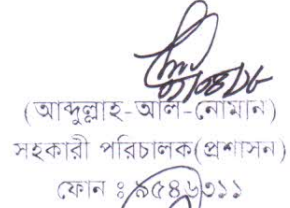 ০১/০৪/১৮
(আব্দুল্লাহ-আল-নোমান)
সহকারী পরিচালক(প্রশাসন)
ফোন ঃ ৯৫৪৬৩১১